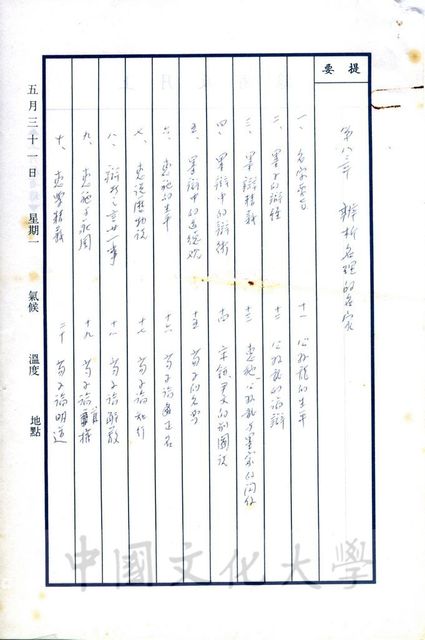 提要
第八三章 辨析名理的名家
一、名家要旨
二、墨子的辯經
三、墨辯精義
四、墨辯中的辯術
五、墨辯中的道德觀
六、惠施的生平
七、惠說歷物說
八、辯者之言廿一事
九、惠施與莊周
十、惠學精義
十一 公孫龍的生平
十二 公孫龍的論辯
十三 惠施公孫龍與墨家的關係
十四 宋鈃尹文的別國說
十五 荀子的名學
十六 荀子論正名
十七 荀子論知行
十八 荀子論解蔽
十九 荀子論
二十 荀子論明道
五月三十一日 星期一 氣候 溫度 地點
中國文化大學